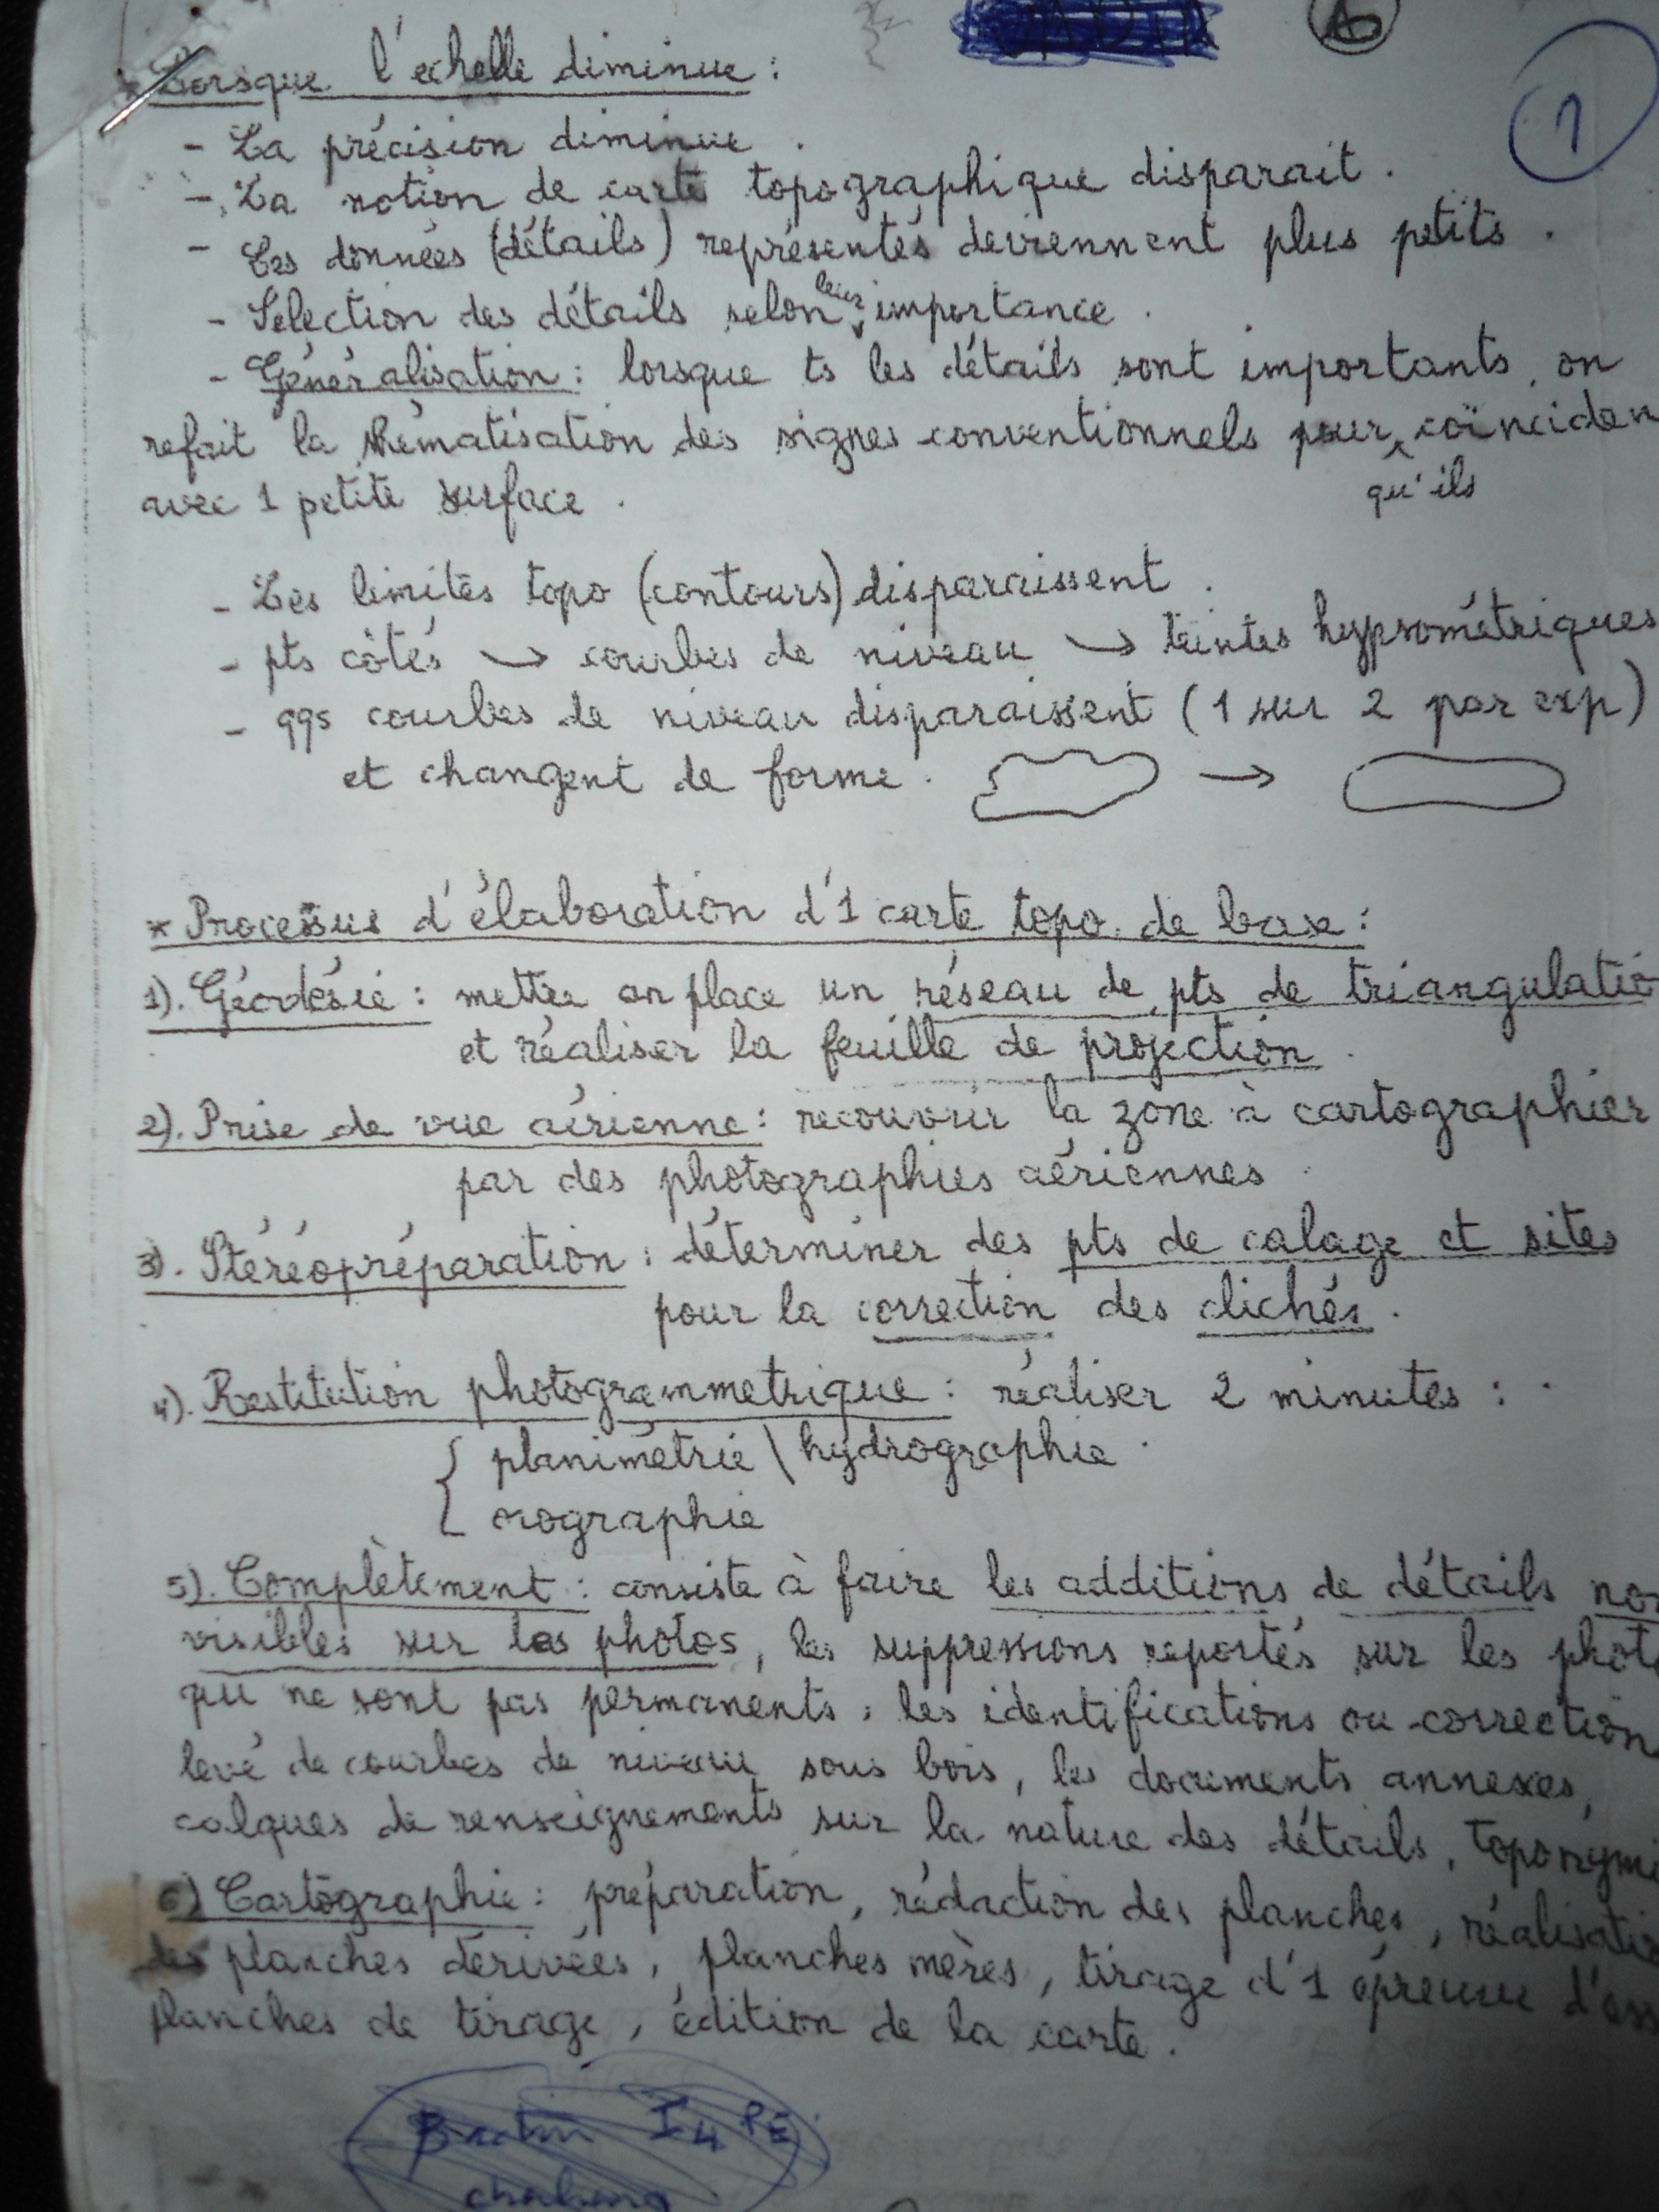 A
1
* Lorsque l'echelle diminue :
- La précision diminue .
- La notion de carte topographique disparait .
- Les données (détails) représentés deviennent plus petits .
- Sélection des détails selon leur importance .
- Généralisation : lorsque ts les détails sont importants, on
refait la thématisation des signes conventionnels pour qu'ils coïnciden
avec 1 petite surface .
- Les limites topo (contours) disparaissent .
- pts côtés → courbes de niveau → teintes hypsométriques
- qqs courbes de niveau disparaissent (1 sur 2 par exp)
et changent de forme . →
* Processus d'élaboration d'1 carte topo. de base :
1). Géodésie : mettre en place un réseau de pts de triangulatio
et réaliser la feuille de projection .
2). Prise de vue aérienne : recouvrir la zone à cartographier
par des photographies aériennes .
3). Stéréopréparation : déterminer des pts de calage et sites
pour la correction des clichés .
4). Restitution photogrammetrique : réaliser 2 minutes :
{ planimétrie \ hydrographie
orographie
5). Complètement : consiste à faire les additions de détails non
visibles sur les photos, les suppressions reportés sur les phot
qui ne sont pas permanents, les identifications ou correction
levé de courbes de niveau sous bois, les documents annexes,
calques de renseignements sur la nature des détails, toponymi
6) Cartographie : préparation, rédaction des planches, réalisatio
des planches dérivées, planches mères, tirage d'1 épreuve d'ess
planches de tirage, édition de la carte .
I4 PE